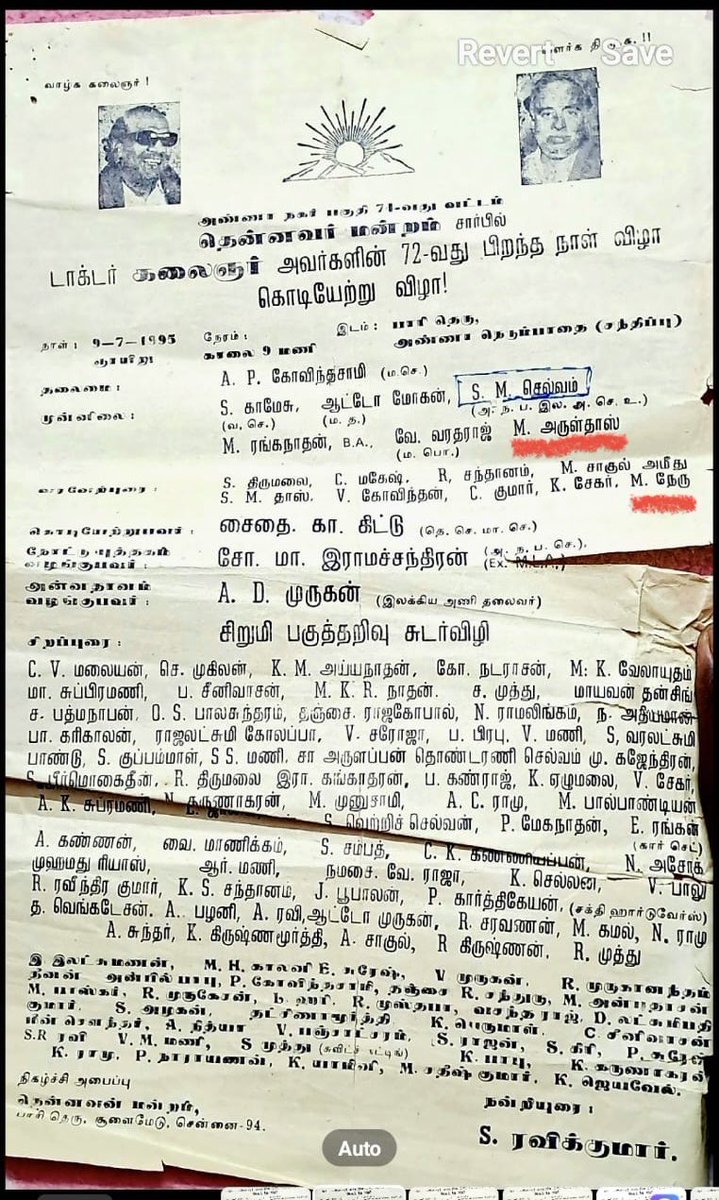 Revert Save
வாழ்க கலைஞர் !
வளர்க தி.மு.க. !!
அண்ணா நகர் பகுதி 71-வது வட்டம்
தென்னவர் மன்றம் சார்பில்
டாக்டர் கலைஞர் அவர்களின் 72-வது பிறந்த நாள் விழா
கொடியேற்று விழா!
நாள் : 9-7-1995 நேரம் : இடம் : பாரி தெரு,
ஞாயிறு காலை 9 மணி அண்ணா நெடும்பாதை (சந்திப்பு)
தலைமை : A. P. கோவிந்தசாமி (ம.செ.)
முன்னிலை : S. காமேசு, ஆட்டோ மோகன், S. M. செல்வம்
(வ. செ.) (ம. த.) (அ. ந. ப. இல. அ. செ. உ.)
M. ரங்கநாதன், B.A., வே. வரதராஜ் M. அருள்தாஸ்
(ம. பொ.)
வரவேற்புரை : S. திருமலை, C. மகேஷ், R, சந்தானம், M. சாகுல் அமீது
S. M. தாஸ். V. கோவிந்தன், C. குமார், K. சேகர், M. நேரு
கொடியேற்றுபவர் : சைதை. கா. கிட்டு (தெ. செ. மா. செ.)
நோட்டுபுத்தகம் வழங்குபவர் : சோ. மா. இராமச்சந்திரன் (அ. ந. ப. செ.), (Ex. M.L.A.)
அன்னதானம் வழங்குபவர் : A. D. முருகன் (இலக்கிய அணி தலைவர்)
சிறப்புரை : சிறுமி பகுத்தறிவு சுடர்விழி
C. V. மலையன், செ. முகிலன், K. M. அய்யநாதன், கோ. நடராசன், M: K. வேலாயுதம்
மா. சுப்பிரமணி, ப. சீனிவாசன், M. K. R. நாதன். ச. முத்து, மாயவன் தன்சிங்
ச. பத்மநாபன், O. S. பாலசுந்தரம், தஞ்சை. ராஜகோபால், N. ராமலிங்கம், ந. அதியமான்
பா. கரிகாலன், ராஜலட்சுமி கோலப்பா, V. சரோஜா, ப. பிரபு, V. மணி, S, வரலட்சுமி
பாண்டு, S. குப்பம்மாள், S S. மணி. சா அருளப்பன் தொண்டரணி செல்வம் மு. கஜேந்திரன்,
S. பீர்மொகைதீன், R. திருமலை இரா. கங்காதரன், ப. கண்ராஜ், K. ஏழுமலை, V. சேகர்,
A. K. சுப்ரமணி, N. கருணாகரன், M. முனுசாமி, A. C. ராமு, M. பால்பாண்டியன்
S. வெற்றிச் செல்வன், P. மேகநாதன், E. ரங்கன்
(கார் செட்)
A. கண்ணன், வை. மாணிக்கம், S. சம்பத், C. K. கண்ணியப்பன், N. அசோக்
முஹமது ரியாஸ், ஆர். மணி, நமசை. வே. ராஜா, K. செல்லன், V. பாலு
R. ரவிந்திர குமார், K. S. சந்தானம், J. பூபாலன், P. கார்த்திகேயன், (சக்தி ஹார்டுவேர்ஸ்)
த. வெங்கடேசன். A.. பழனி, A. ரவி,ஆட்டோ முருகன், R. சரவணன், M. கமல், N. ராமு
A. சுந்தர், K. கிருஷ்ணமூர்த்தி, A. சாகுல், R கிருஷ்ணன், R. முத்து
இ இலட்சுமணன், M. H. காலனி E. சுரேஷ், V முருகன். R. முருகானந்தம்
தீனன் அன்பில் பாபு, P. கோவிந்தசாமி, தஞ்சை R. சந்துரு, M. அன்பழகன்
M. பாஸ்கர், R. முருகேசன், R. முஸ்தபா, வசந்த ராஜ். D. லட்சுமிபதி
குமார். S. அழகன், தட்சிணாமூர்த்தி K. பெருமாள். C சீனிவாசன்
A. நித்யா V. பஞ்சாட்சரம், S. ராஜன், S. கிரி,
S.R ரவி V. M. மணி, S முத்து K. பாபு, K. கருணாகரன்
K. ராமு, P. நாராயணன், K. யாமினி, M. சதிஷ் குமார். K. ஜெயவேல்.
நிகழ்ச்சி அமைப்பு
தென்னவன் மன்றம்,
பாரி தெரு, சூளைமேடு, சென்னை-94.
நன்றியுரை :
S. ரவிக்குமார்.
Auto